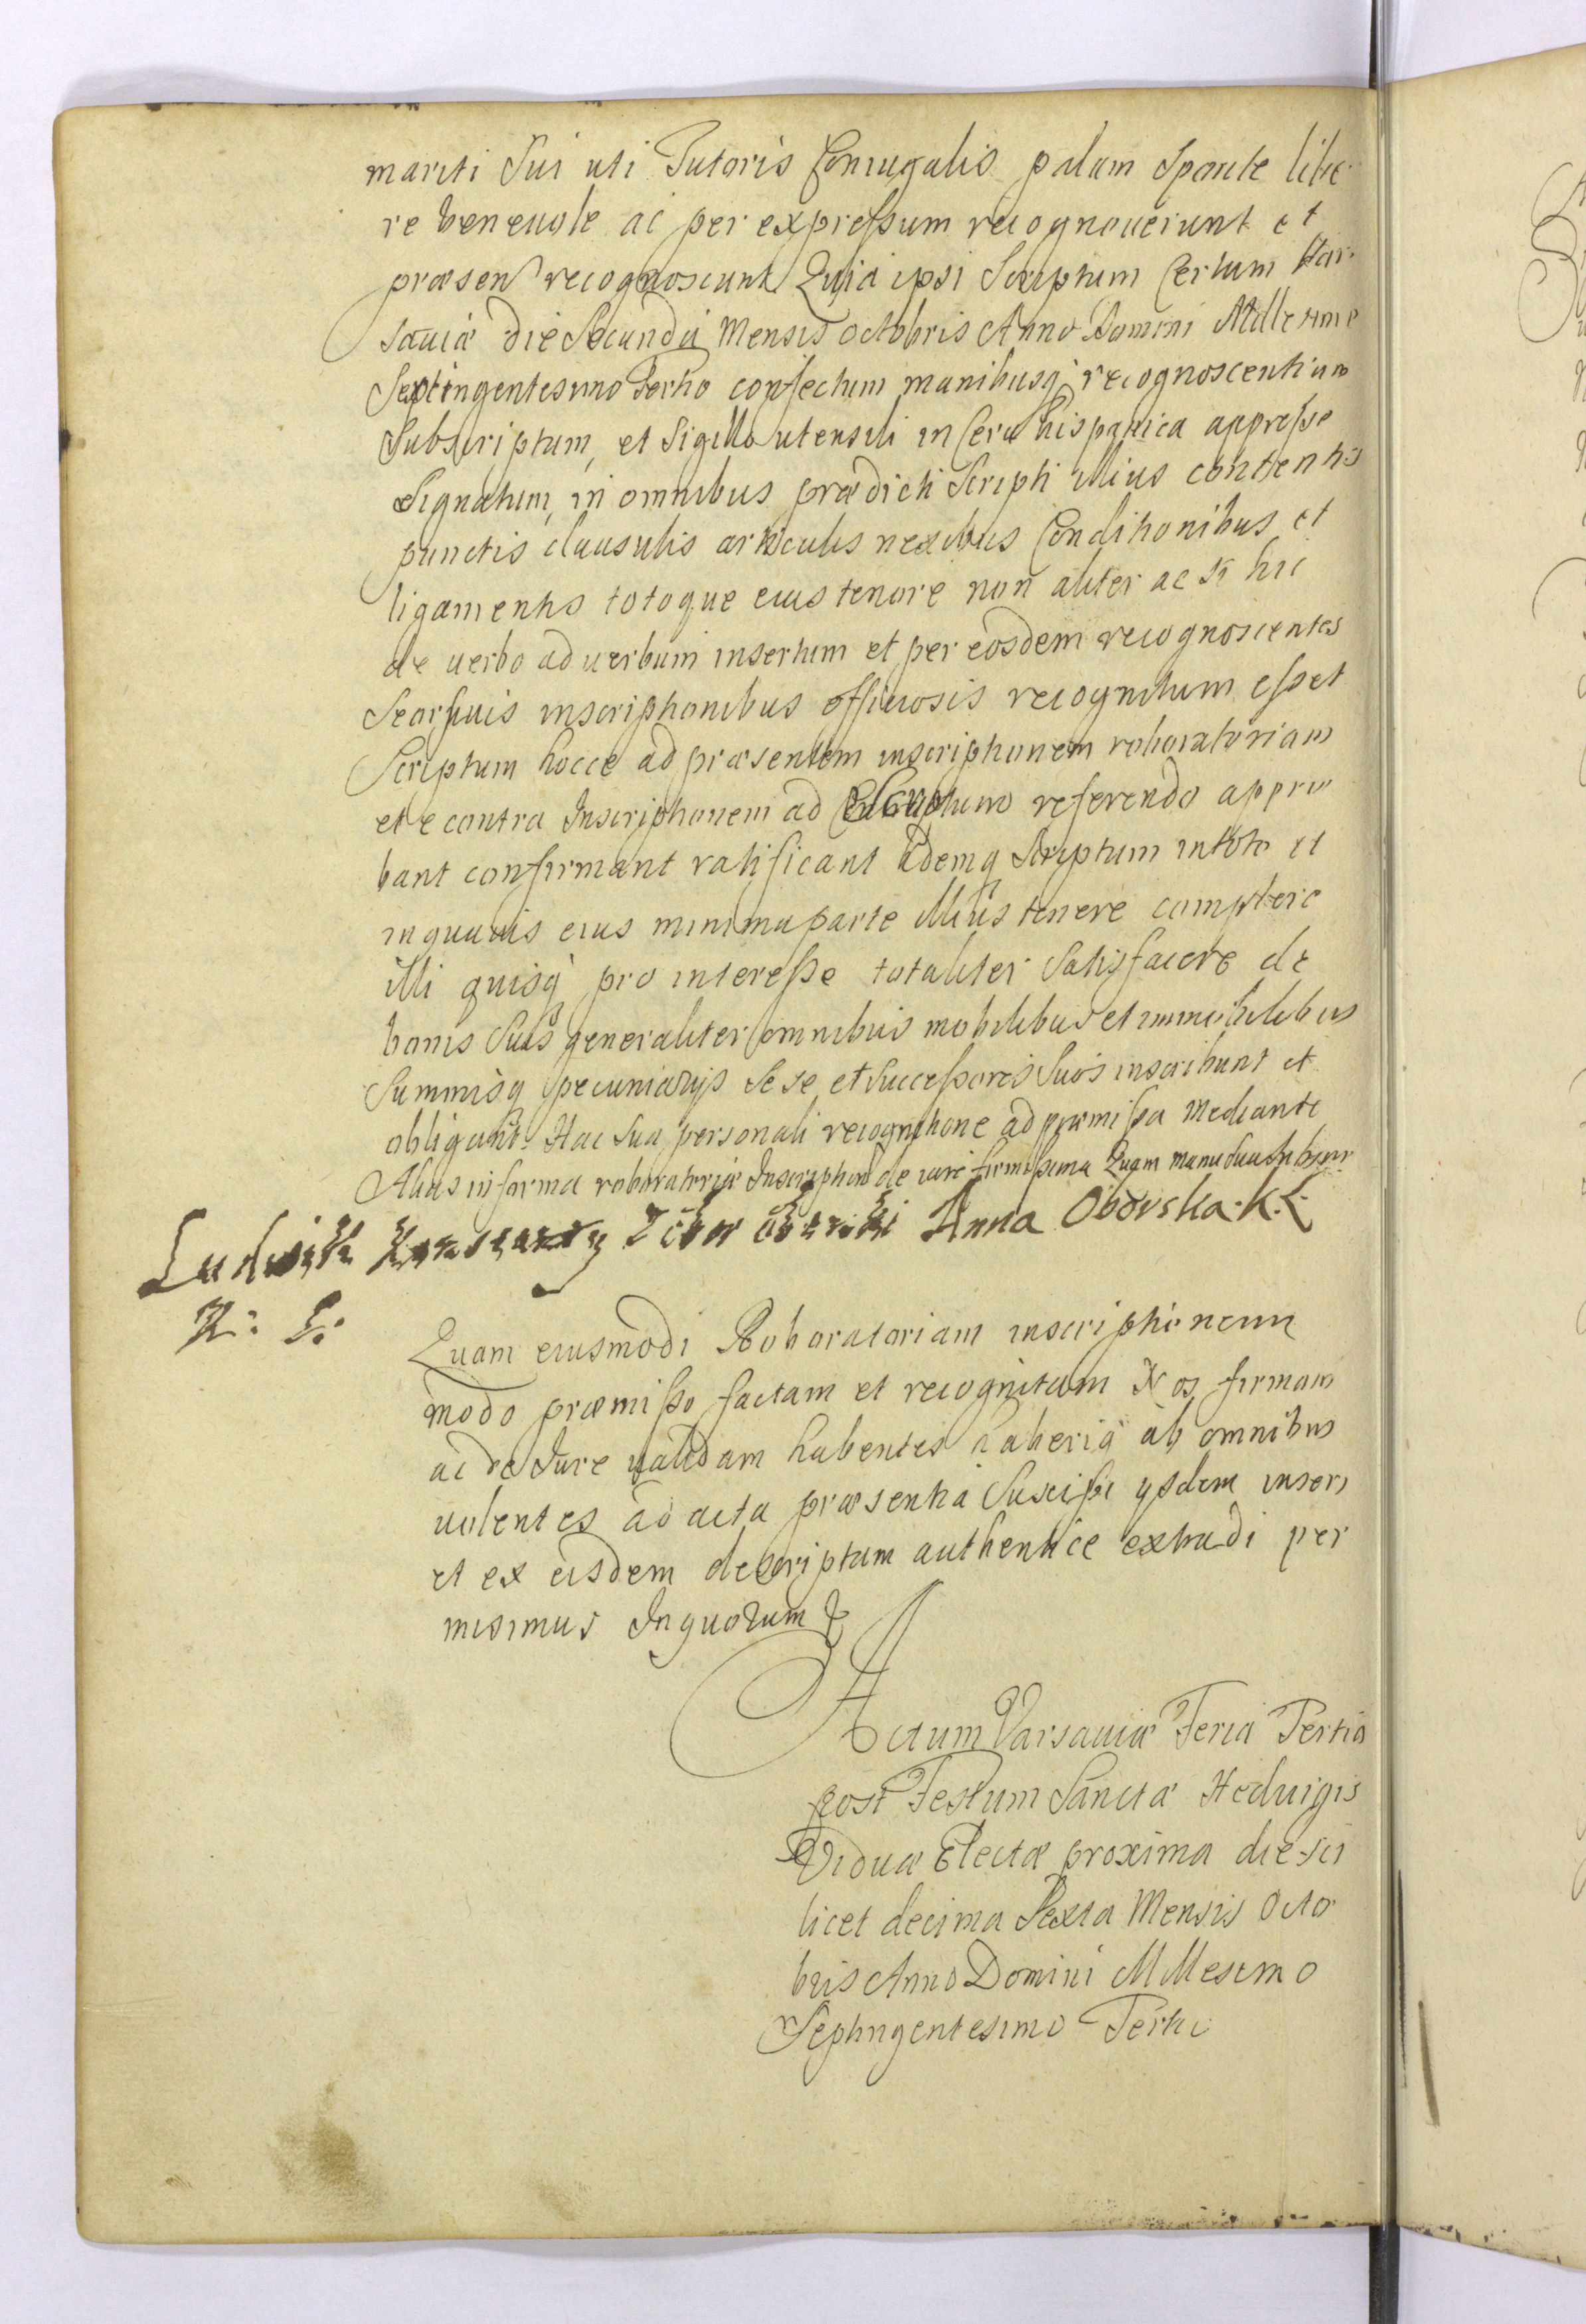 mariti Sui uti Tutoris Coniugalis palam Sponte libe
re beneuole ac per expressum recognouerunt et
præsen recognoscunt Quia ipsi Scriptum Certum Var
sauiæ die Secunda Mensis Octobris Anno Domini Millesimo
Septingentesimo Tertio confectum manibusq recognoscentium
Subscriptum, et Sigillo utensili in Cera hispanica appresse
Signatum, in omnibus prædicti Scripti illius contentis
punctis clausulis articulis nexibus Conditionibus et
ligamentis totoque eius tenore non aliter ac si hic
de uerbo ad uerbum insertum et per eosdem recognoscentes
Seorsiuis inscriptionibus officiosis recognitum esset
Scriptum hocce ad præsentem inscriptionem roboratoriam
et e contra Inscriptionem ad Scriptum referendo appro
bant confirmant ratificant Idemq Scriptum in toto et
in quauis eius minima parte illius tenere complere
illi quisq pro interesse totaliter Satisfacere de
bonis Suis generaliter omnibus mobilibus et immobilibus
Summisq pecuniarijs Se se et Successores Suos inscribunt et
obligant. Hac Sua personali recognitione ad præmissa Mediante
Alias in forma roboratoriæ Inscriptionis de iure firmissima Quam manu
Ludwik Anna Oborska K. L.
K: L:
Quam eiusmodi Roboratoriam inscriptionem
modo præmisso factam et recognitam Nos firmam
ac de Iure ualidam habentes haberiq ab omnibus
uolentes ad acta præsentia Suscipi ysdem inseri
et ex eisdem descriptum authentice extradi per
misimus In quorum
Actum Varsauiæ Feria Tertia
post Festum Sanctæ Heduigis
Viduæ Electæ proxima die sci
licet decima Sexta Mensis Octo
bris Anno Domini Millesimo
Septingentesimo Tertio